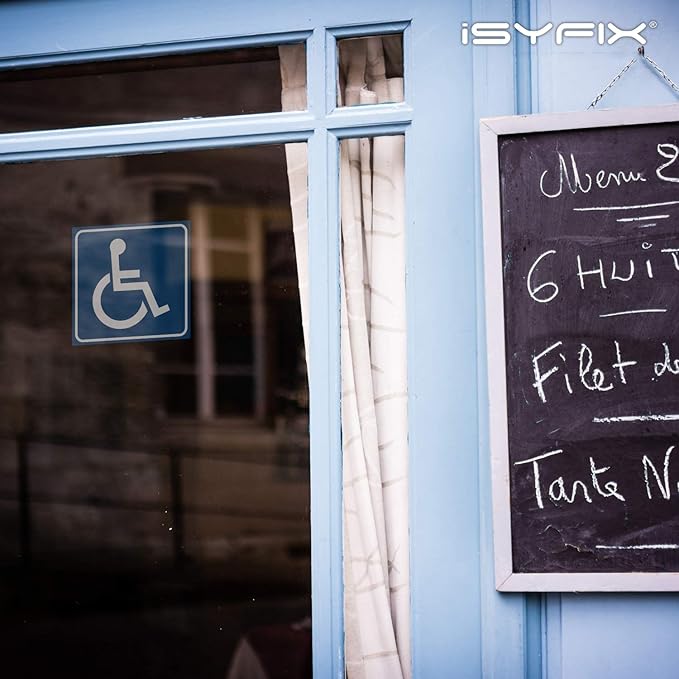 iSYFIX®
Menu 2
6 HUIT
Filet de
Tarte N